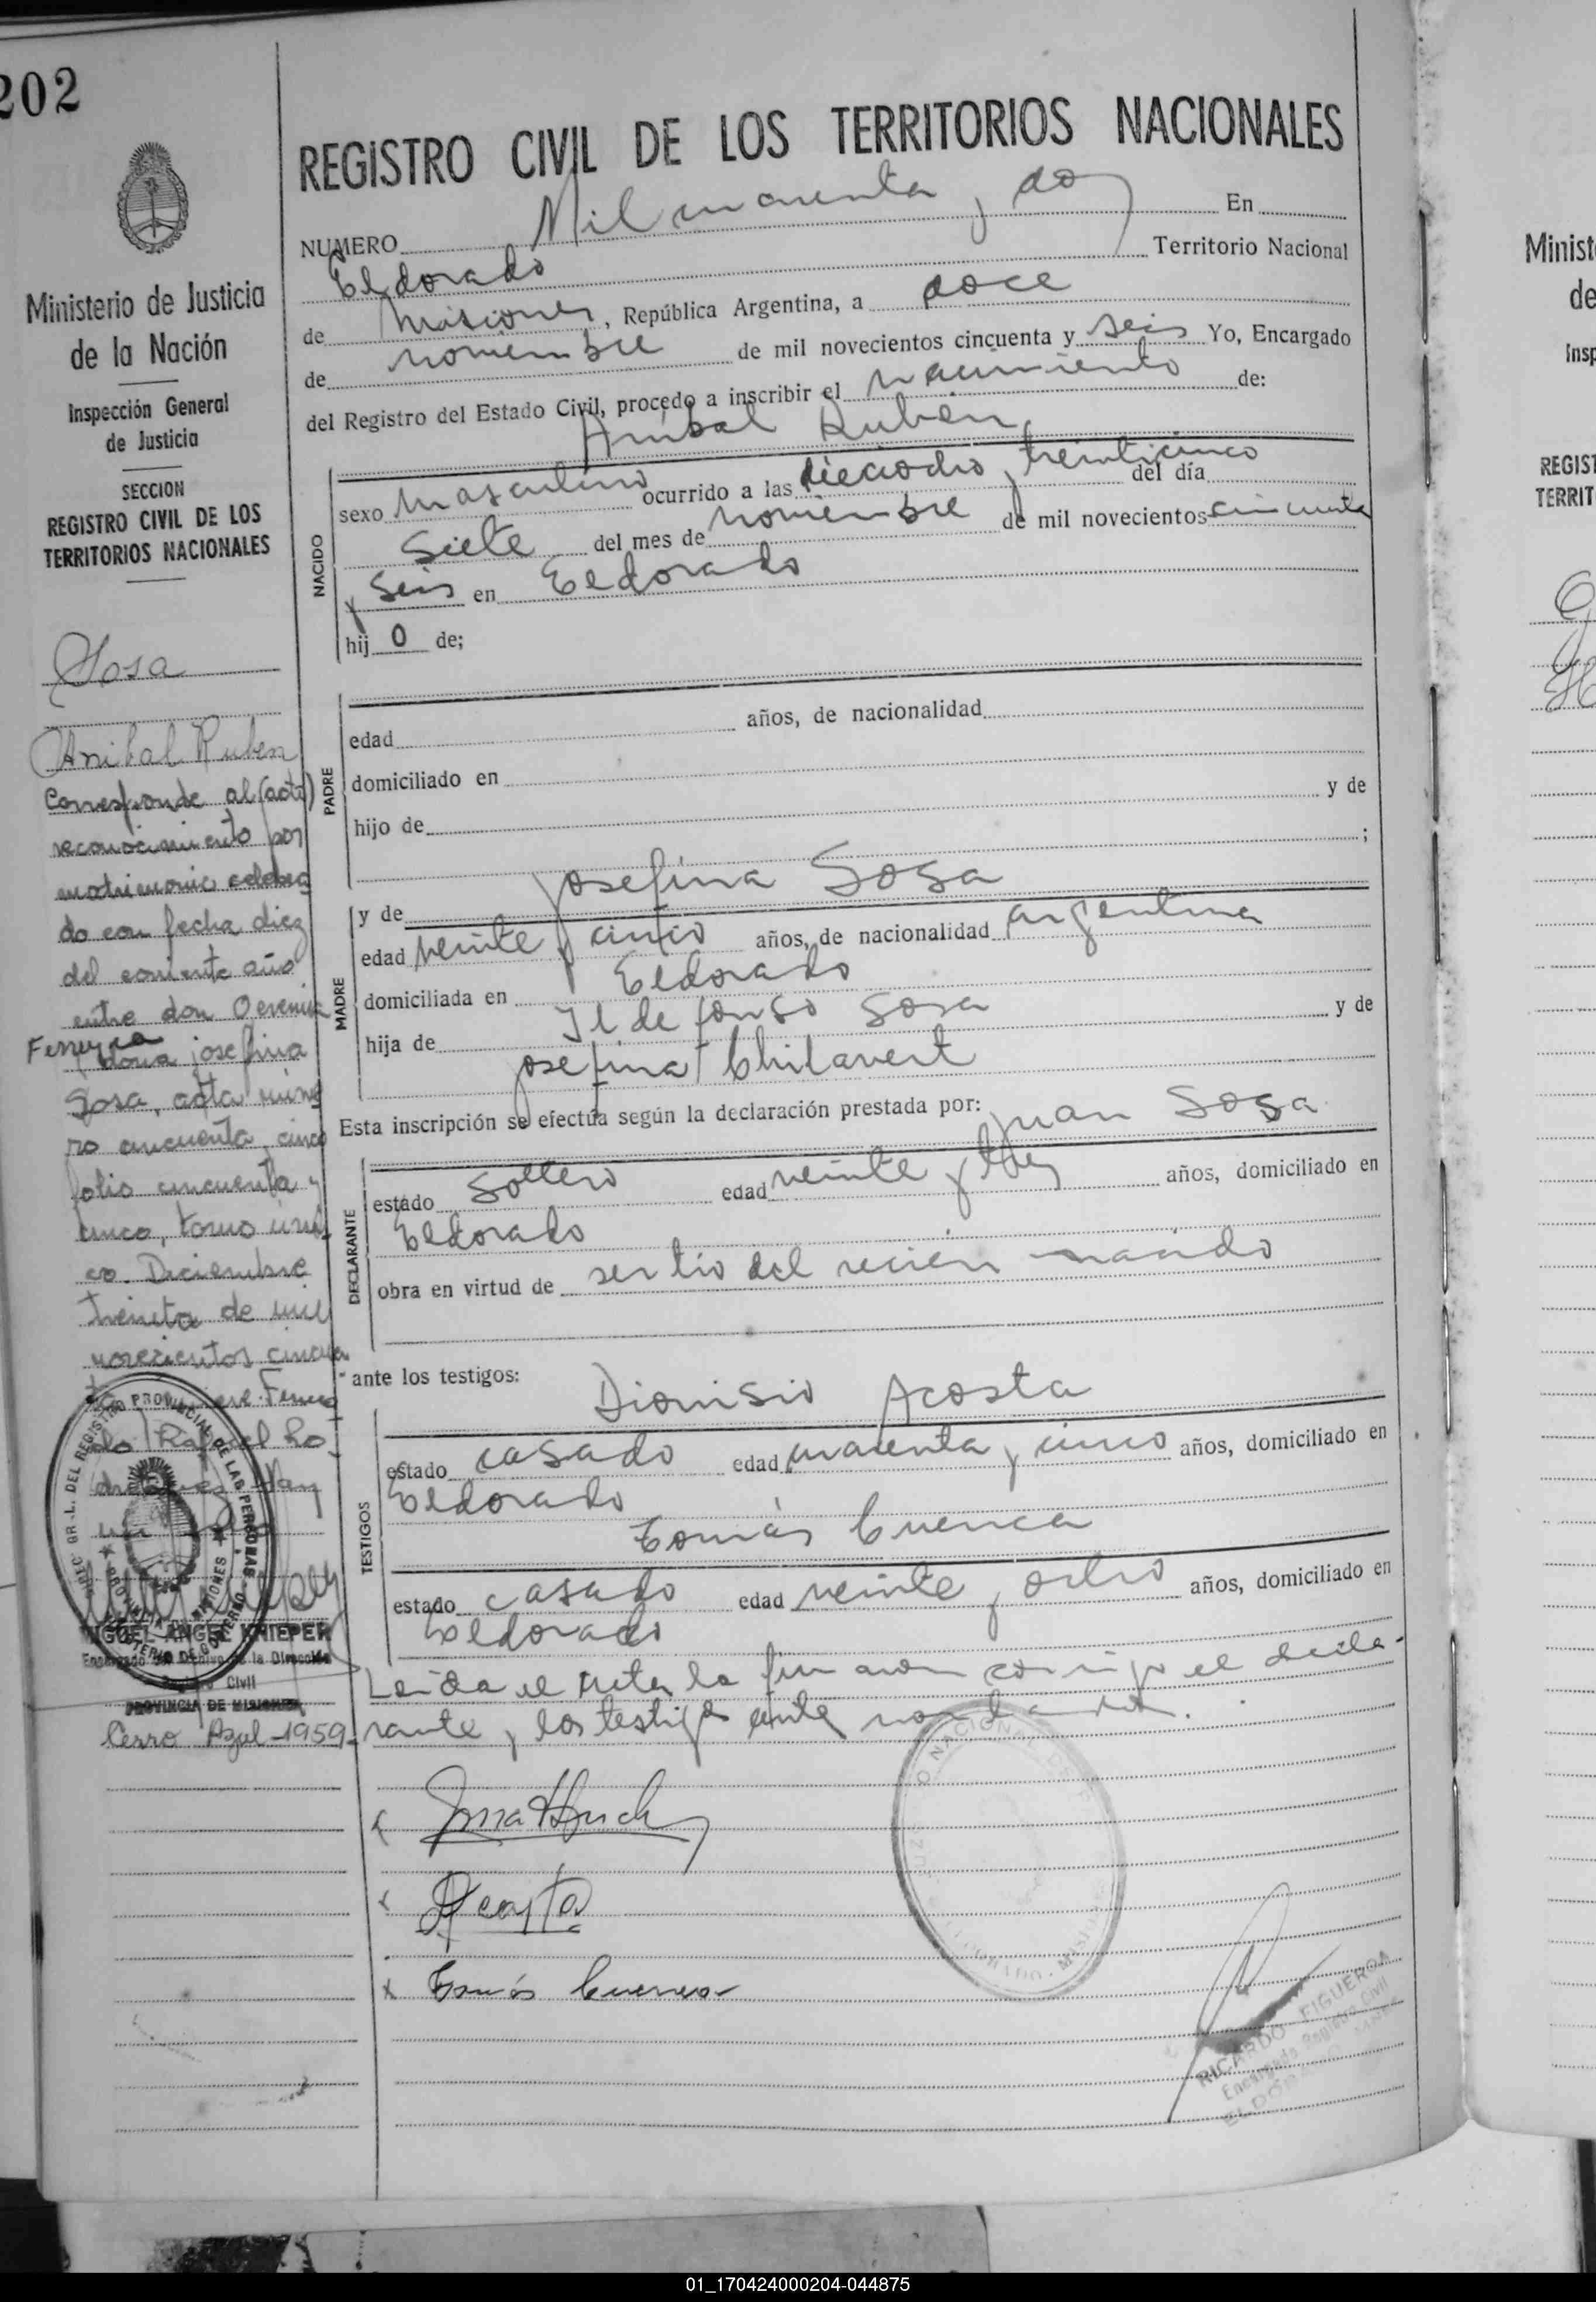 202
REGISTRO CIVIL DE LOS TERRITORIOS NACIONALES
NUMERO Mil cuarenta y dos En
Eldorado Territorio Nacional
de Misiones, República Argentina, a doce
de noviembre de mil novecientos cincuenta y seis Yo, Encargado
del Registro del Estado Civil, procedo a inscribir el nacimiento de:
Anibal Rubén
NACIDO
sexo masculino ocurrido a las dieciocho y treinticinco del día
siete del mes de noviembre de mil novecientos cincuenta
y seis en Eldorado
hij o de;
PADRE
edad años, de nacionalidad
domiciliado en
hijo de y de
;
MADRE
y de Josefina Sosa
edad veinte y cinco años, de nacionalidad argentina
domiciliada en Eldorado
hija de Ildefonso Sosa y de
Josefina Chilavert
Esta inscripción se efectúa según la declaración prestada por: Juan Sosa
DECLARANTE
estado soltero edad veinte y tres años, domiciliado en
Eldorado
obra en virtud de ser tio del recién nacido
ante los testigos: Dionisio Acosta
TESTIGOS
estado casado edad cuarenta y cinco años, domiciliado en
Eldorado
Tomás Cuenca
estado casado edad veinte y ocho años, domiciliado en
Eldorado
Leida el acta, la firmaron conmigo el decla-
rante y los testigos
Acosta
Tomás Cuenca
RICARDO FIGUEROA
Encargado Registro Civil
ELDORADO
Ministerio de Justicia
de la Nación
Inspección General
de Justicia
SECCION
REGISTRO CIVIL DE LOS
TERRITORIOS NACIONALES
Sosa
Anibal Ruben
Corresponde al (acta)
reconocimiento por
matrimonio celebra
do con fecha diez
del corriente año
entre don
Ferreyra
doña josefina
Sosa, acta núme
ro cincuenta y cinco
folio cincuenta y
cinco, tomo úni
co. Diciembre
treinta de mil
novecientos cincuen
MIGUEL ANGEL KNIEPER
Encargado del Archivo de la Dirección
Civil
PROVINCIA DE MISIONES
Cerro Azul - 1959
Minist
de
Insp
REGIST
TERRIT
01_170424000204-044875